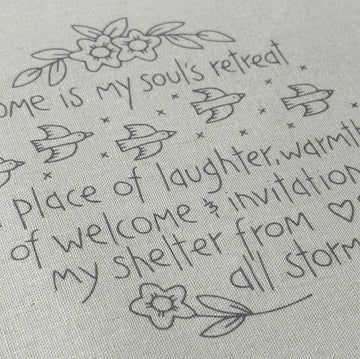 ome is my soul's retreat
place of laughter, warmth
of welcome & invitation
my shelter from
all storm